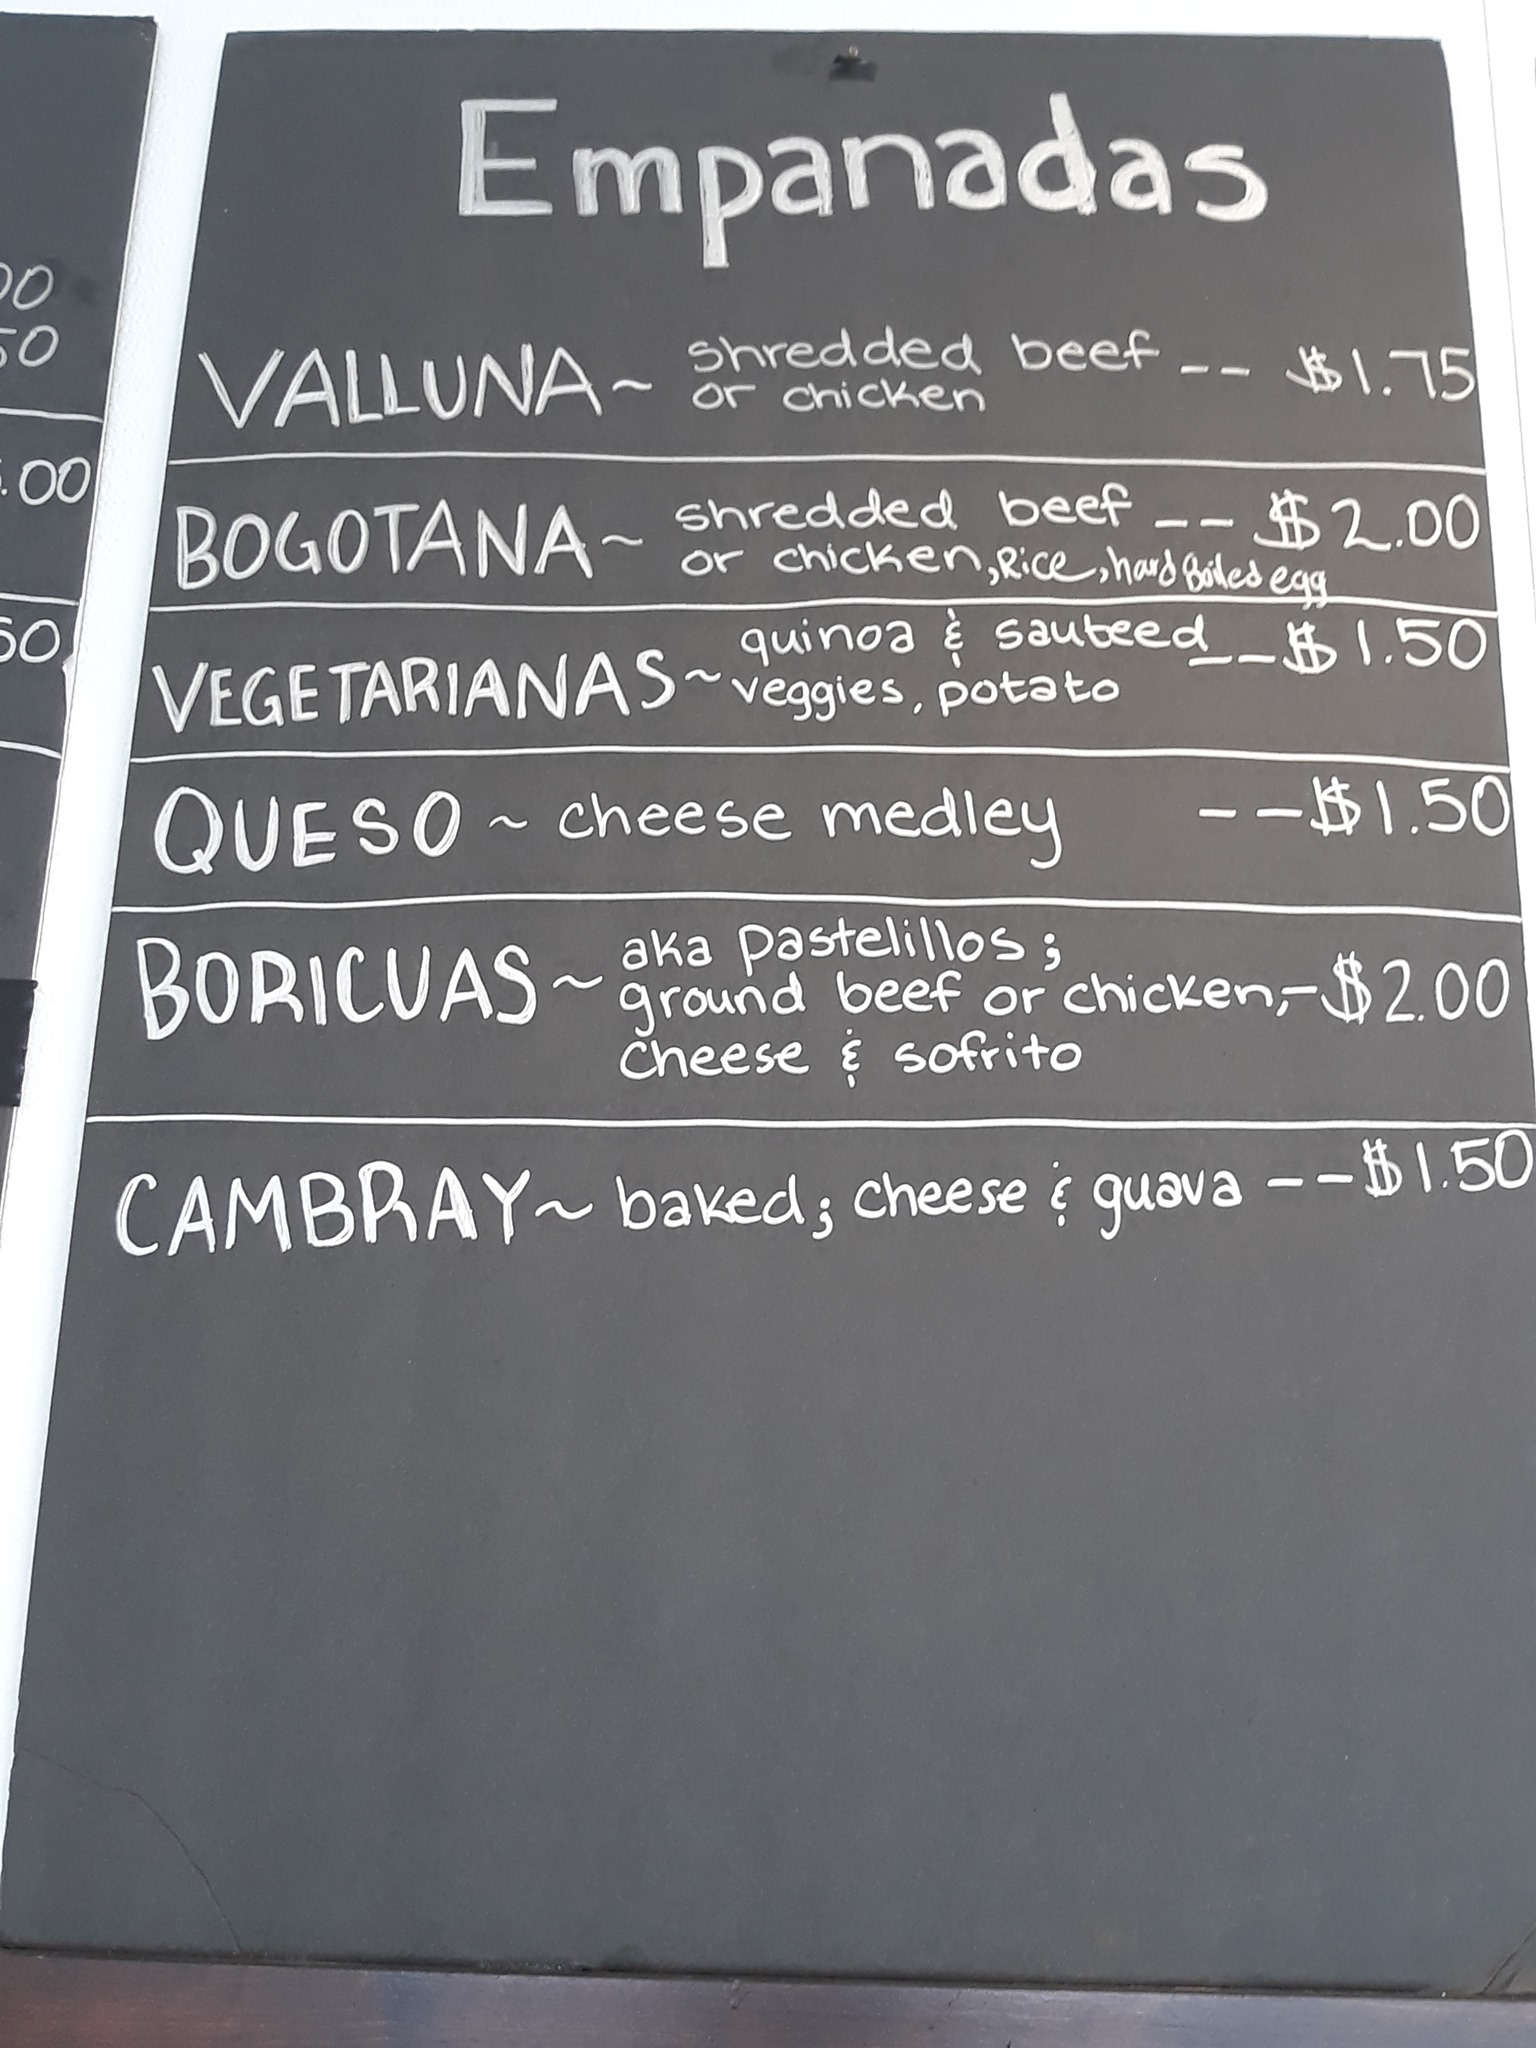 Empanadas
VALLUNA ~ shredded beef -- $1.75
or chicken
BOGOTANA ~ shredded beef -- $2.00
or chicken, Rice, hard Boiled egg
VEGETARIANAS ~ quinoa & sauteed -- $1.50
veggies, potato
QUESO ~ cheese medley -- $1.50
BORICUAS ~ aka pastelillos;
ground beef or chicken, - $2.00
cheese & sofrito
CAMBRAY ~ baked; cheese & guava -- $1.50
00
50
.00
50